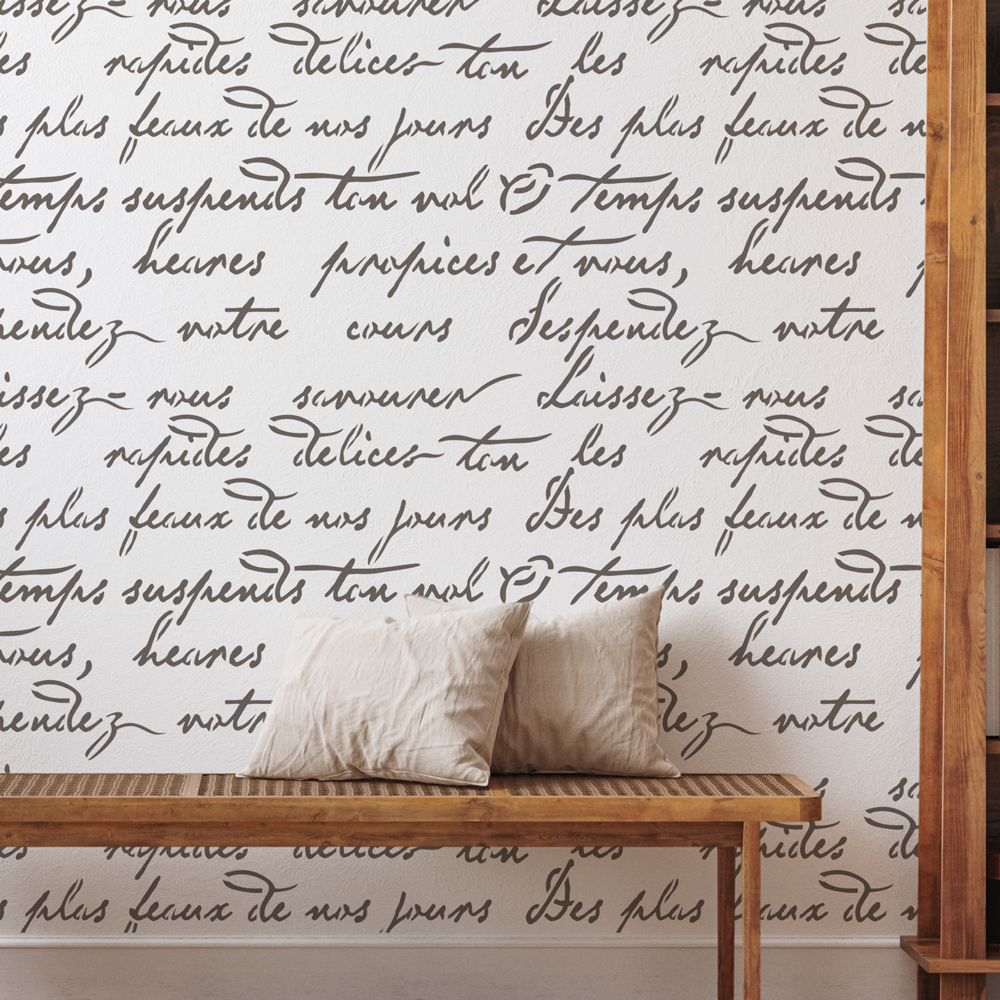 issez- nous savourer Laissez- nous sa
es rapides delices ton les rapides de
s plus beaux de nos jours Des plus beaux de n
temps suspends ton vol O temps suspends
vous, heures propices et vous, heures p
pendez votre cours Suspendez votre
issez- nous savourer Laissez- nous sa
es rapides delices ton les rapides de
s plus beaux de nos jours Des plus beaux de n
temps suspends ton vol O temps suspends
vous, heures s, heures p
pendez votr dez votre
sa
es rapides delices ton les rapides de
s plus beaux de nos jours Des plus eaux de n